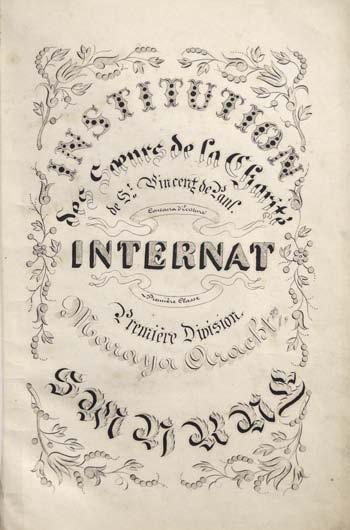 INSTITUTION
des Sœurs de la Charité
de St. Vincent de Paul.
Concours d'Écriture
INTERNAT
Première Classe
Première Division.
Maraya
SMYRNE